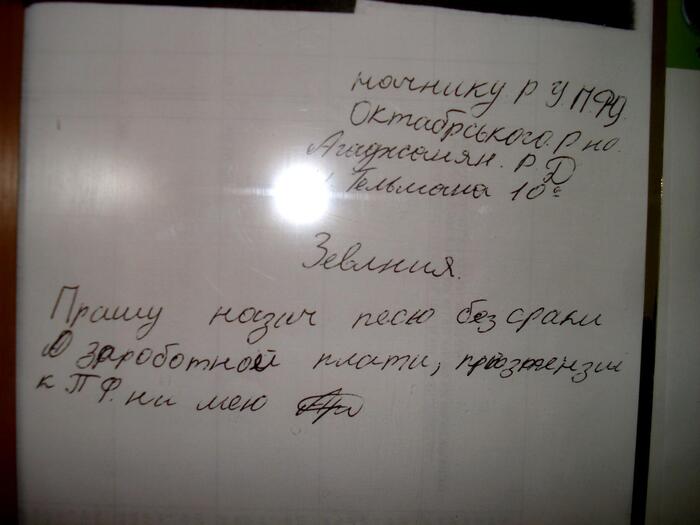 начнику Р У П.ФД.
Октабрського. Р но.
Агаджамян. Р. Д
Тельмана 10а
Зевлния.
Прашу назич песю без сраки
О зароботной плати, приэтензии
к П Ф. ни мею